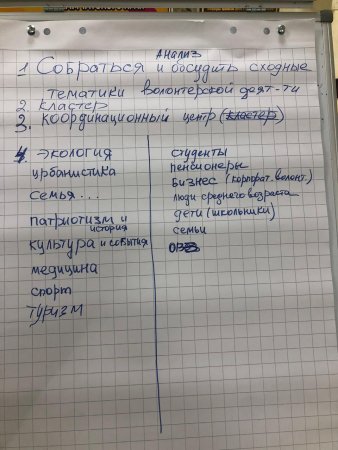 Анализ
1. Собраться и обсудить сходные
тематики волонтерской деят-ти
2. Кластер
3. Координационный центр (кластер)
4. Экология
урбанистика
семья...
патриотизм и
история
культура и события
медицина
спорт
туризм
студенты
пенсионеры
бизнес (корпорат. волонт.)
люди среднего возраста
дети (школьники)
семьи